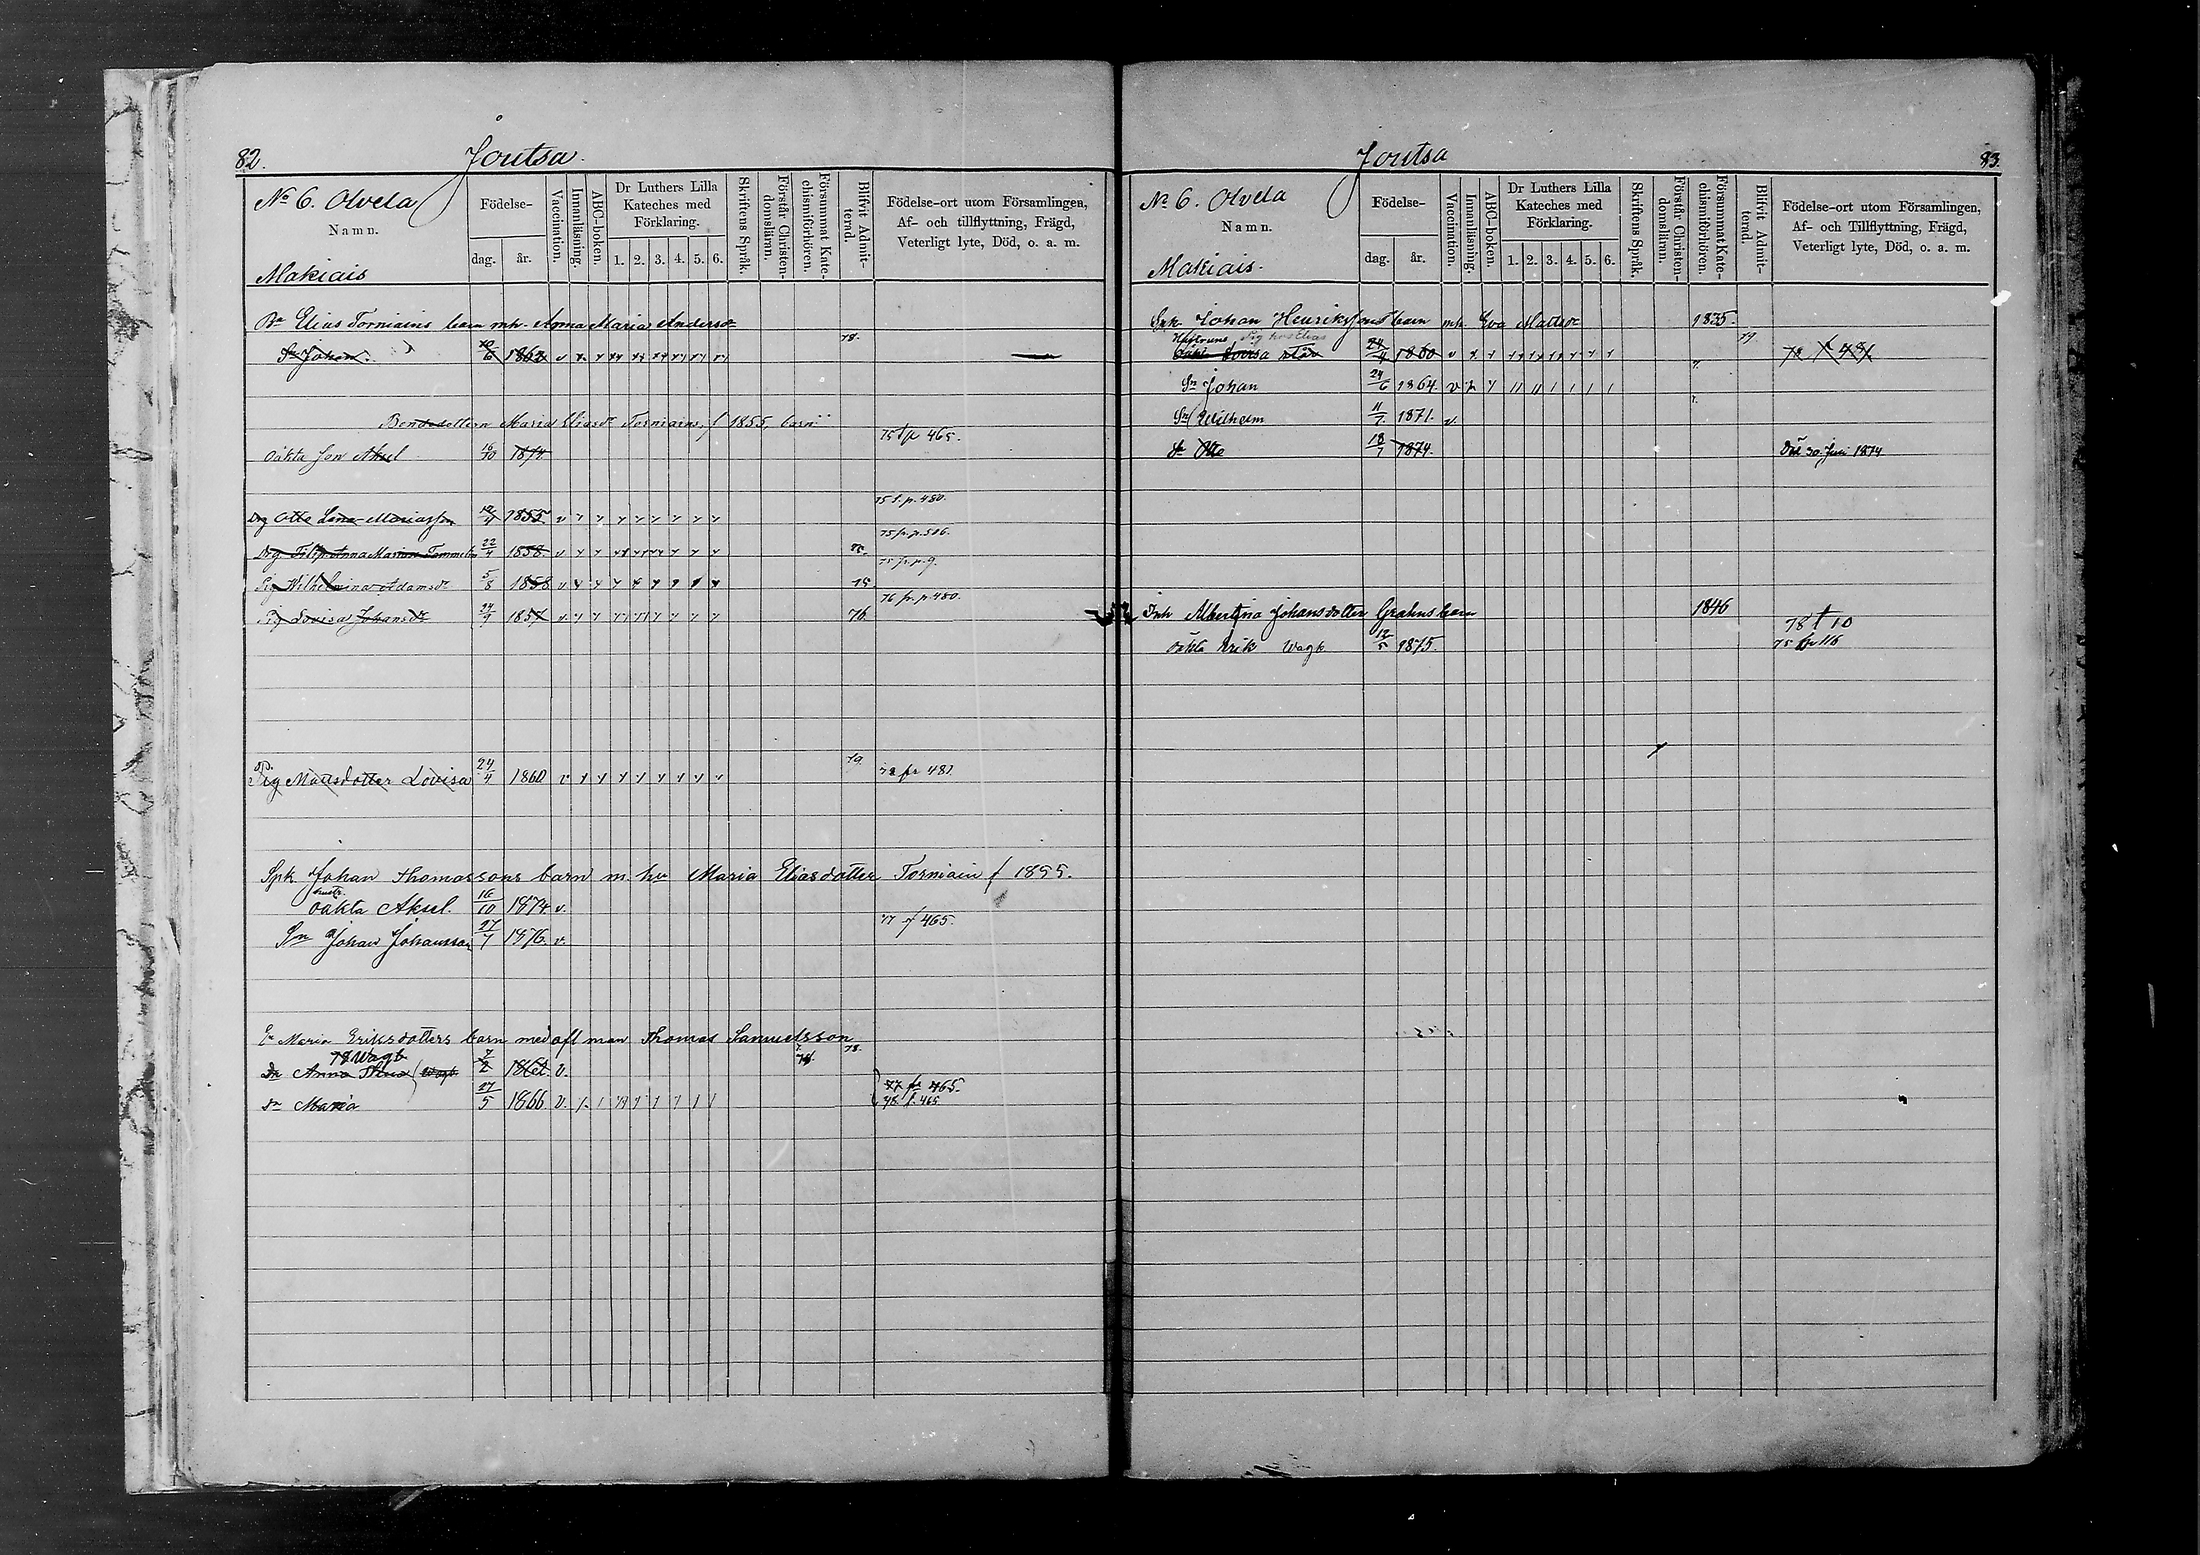 82.
Joutsa.
No 6. Olvela
Namn.
Makiais
Födelse-
dag.
år.
Vaccination.
Innanläsning.
ABC-boken.
Dr Luthers Lilla
Kateches med
Förklaring.
1. 2. 3. 4. 5. 6.
Skriftens Språk.
Förstår Christen-
domsläran.
Försummat Kate-
chismiförhören.
Blifvit Admit-
terad.
Födelse-ort utom Församlingen,
Af- och tillflyttning, Frägd,
Veterligt lyte, Död, o. a. m.
Elias Torniains barn mh. Anna Maria Andersdr
Sn Johan. 10/6 1862 v 78.
Maria Eliasdr Torniains, f 1855, barn
oäkta son Aksel 16/10 1874 75 p 465.
75 f. p. 480.
Drg Otto Lena-Mariasson 1855 v
75 fr. p. 506.
Drg Filip Anna Marias 22/4 1858 v
75 fr. p. 9.
Pig Wilhelmina Adamsdr 5/8 1858 v 75
76 fr. p 480.
Pig Lovisa Johansdr 24/9 1857 v 76.
Pig Mattsdotter Lovisa 24/4 1860 v 79. 78 fr 481
Spk Johan Thomassons barn m. hu Maria Eliasdotter Torniain f 1855.
hustr.
oäkta Aksel. 16/10 1874 v.
77 f 465.
Sn Johan Johansson 27/7 1876. v.
Maria Eriksdotters barn med afl man Thomas Samuelsson
78 Wagb 78.
Dr Anna Stina 7/2 v.
77 fr 465.
dr Maria 27/5 1866 v.
78. f. 465
83.
Joutsa
No 6. Olvela
Namn.
Makiais.
Födelse-
dag.
år.
Vaccination.
Innanläsning.
ABC-boken.
Dr Luthers Lilla
Kateches med
Förklaring.
1. 2. 3. 4. 5. 6.
Skriftens Språk.
Förstår Christen-
domsläran.
Försummat Kate-
chismiförhören.
Blifvit Admit-
terad.
Födelse-ort utom Församlingen,
Af- och Tillflyttning, Frägd,
Veterligt lyte, Död, o. a. m.
Spk Johan Henrikssons barn mh. Eva Mattsdr 1835.
Hustruns Pig hos Elias
Oäkta Lovisa 24/4 1860 v 79 78 f 481
Sn Johan 24/6 1864. v
Sn Wilhelm 11/7 1871. v.
Otto 18/1 1874. Död 30 Juni 1874
Inh Albertina Johansdotter Grahns barn 1846
78 f 10
oäkta Erik Wagb 12/5 1875. 75 fr 116